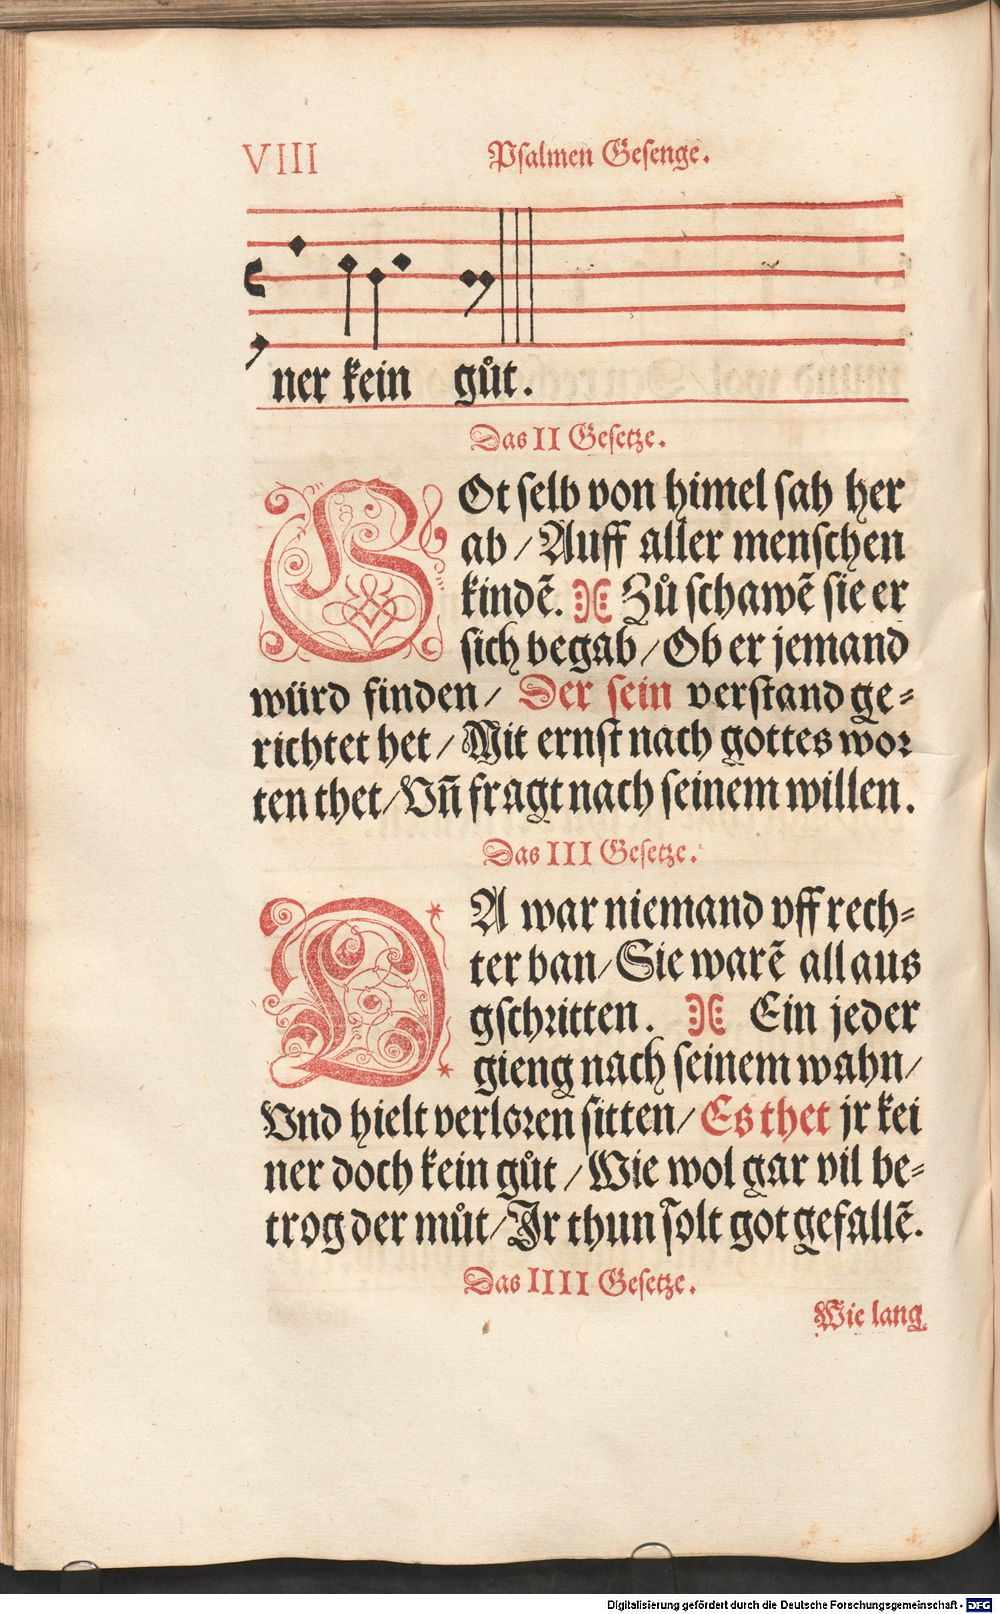 VIII Psalmen Gesenge.
ner kein gůt.
Das II Gesetze.
GOt selb von himel sah her
ab / Auff aller menschen
kindẽ. Zů schawẽ sie er
sich begab / Ob er jemand
würd finden / Der sein verstand ge-
richtet het / Mit ernst nach gottes wor
ten thet / Vñ fragt nach seinem willen.
Das III Gesetze.
DA war niemand vff rech-
ter ban / Sie warẽ all aus
gschritten. Ein jeder
gieng nach seinem wahn /
Vnd hielt verloren sitten / Es thet jr kei
ner doch kein gůt / Wie wol gar vil be-
trog der můt / Jr thun solt got gefallẽ.
Das IIII Gesetze.
Wie lang
Digitalisierung gefördert durch die Deutsche Forschungsgemeinschaft - DFG